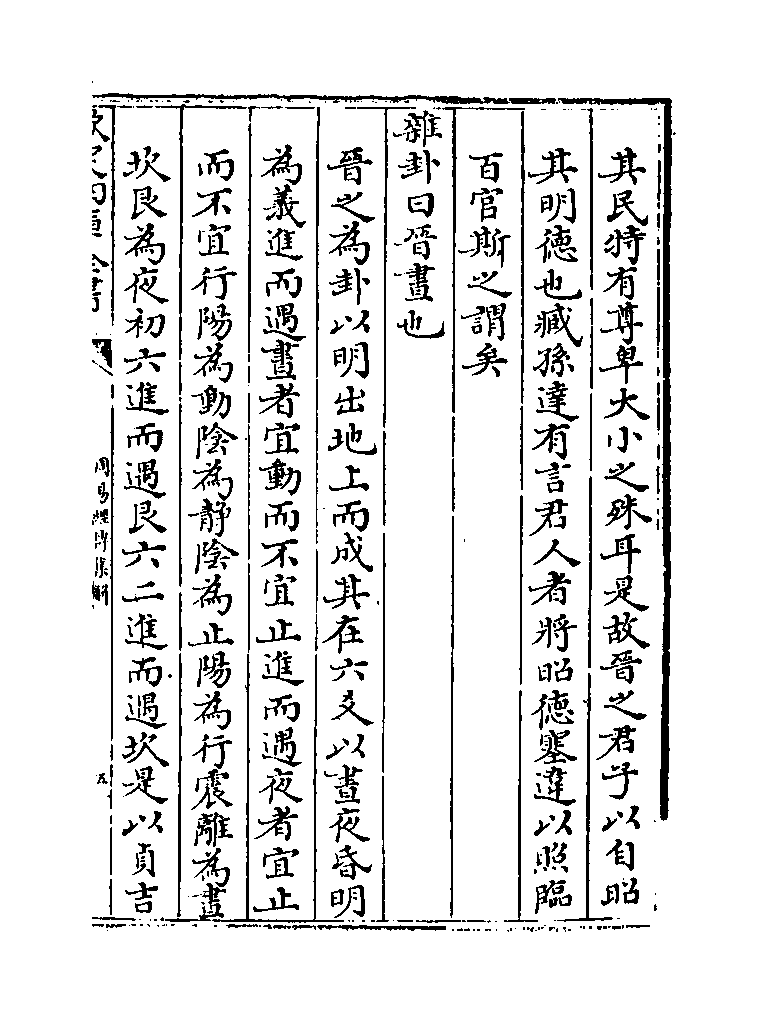 其民特有尊卑大小之殊耳是故晉之君子以自昭
其明德也臧孫達有言君人者將昭德塞違以照臨
百官斯之謂矣
雜卦曰晉晝也
晉之為卦以明出地上而成其在六爻以晝夜昏明
為義進而遇晝者宜動而不宜止進而遇夜者宜止
而不宜行陽為動陰為静陰為止陽為行震離為晝
坎艮為夜初六進而遇艮六二進而遇坎是以貞吉
周易經傳集解
五